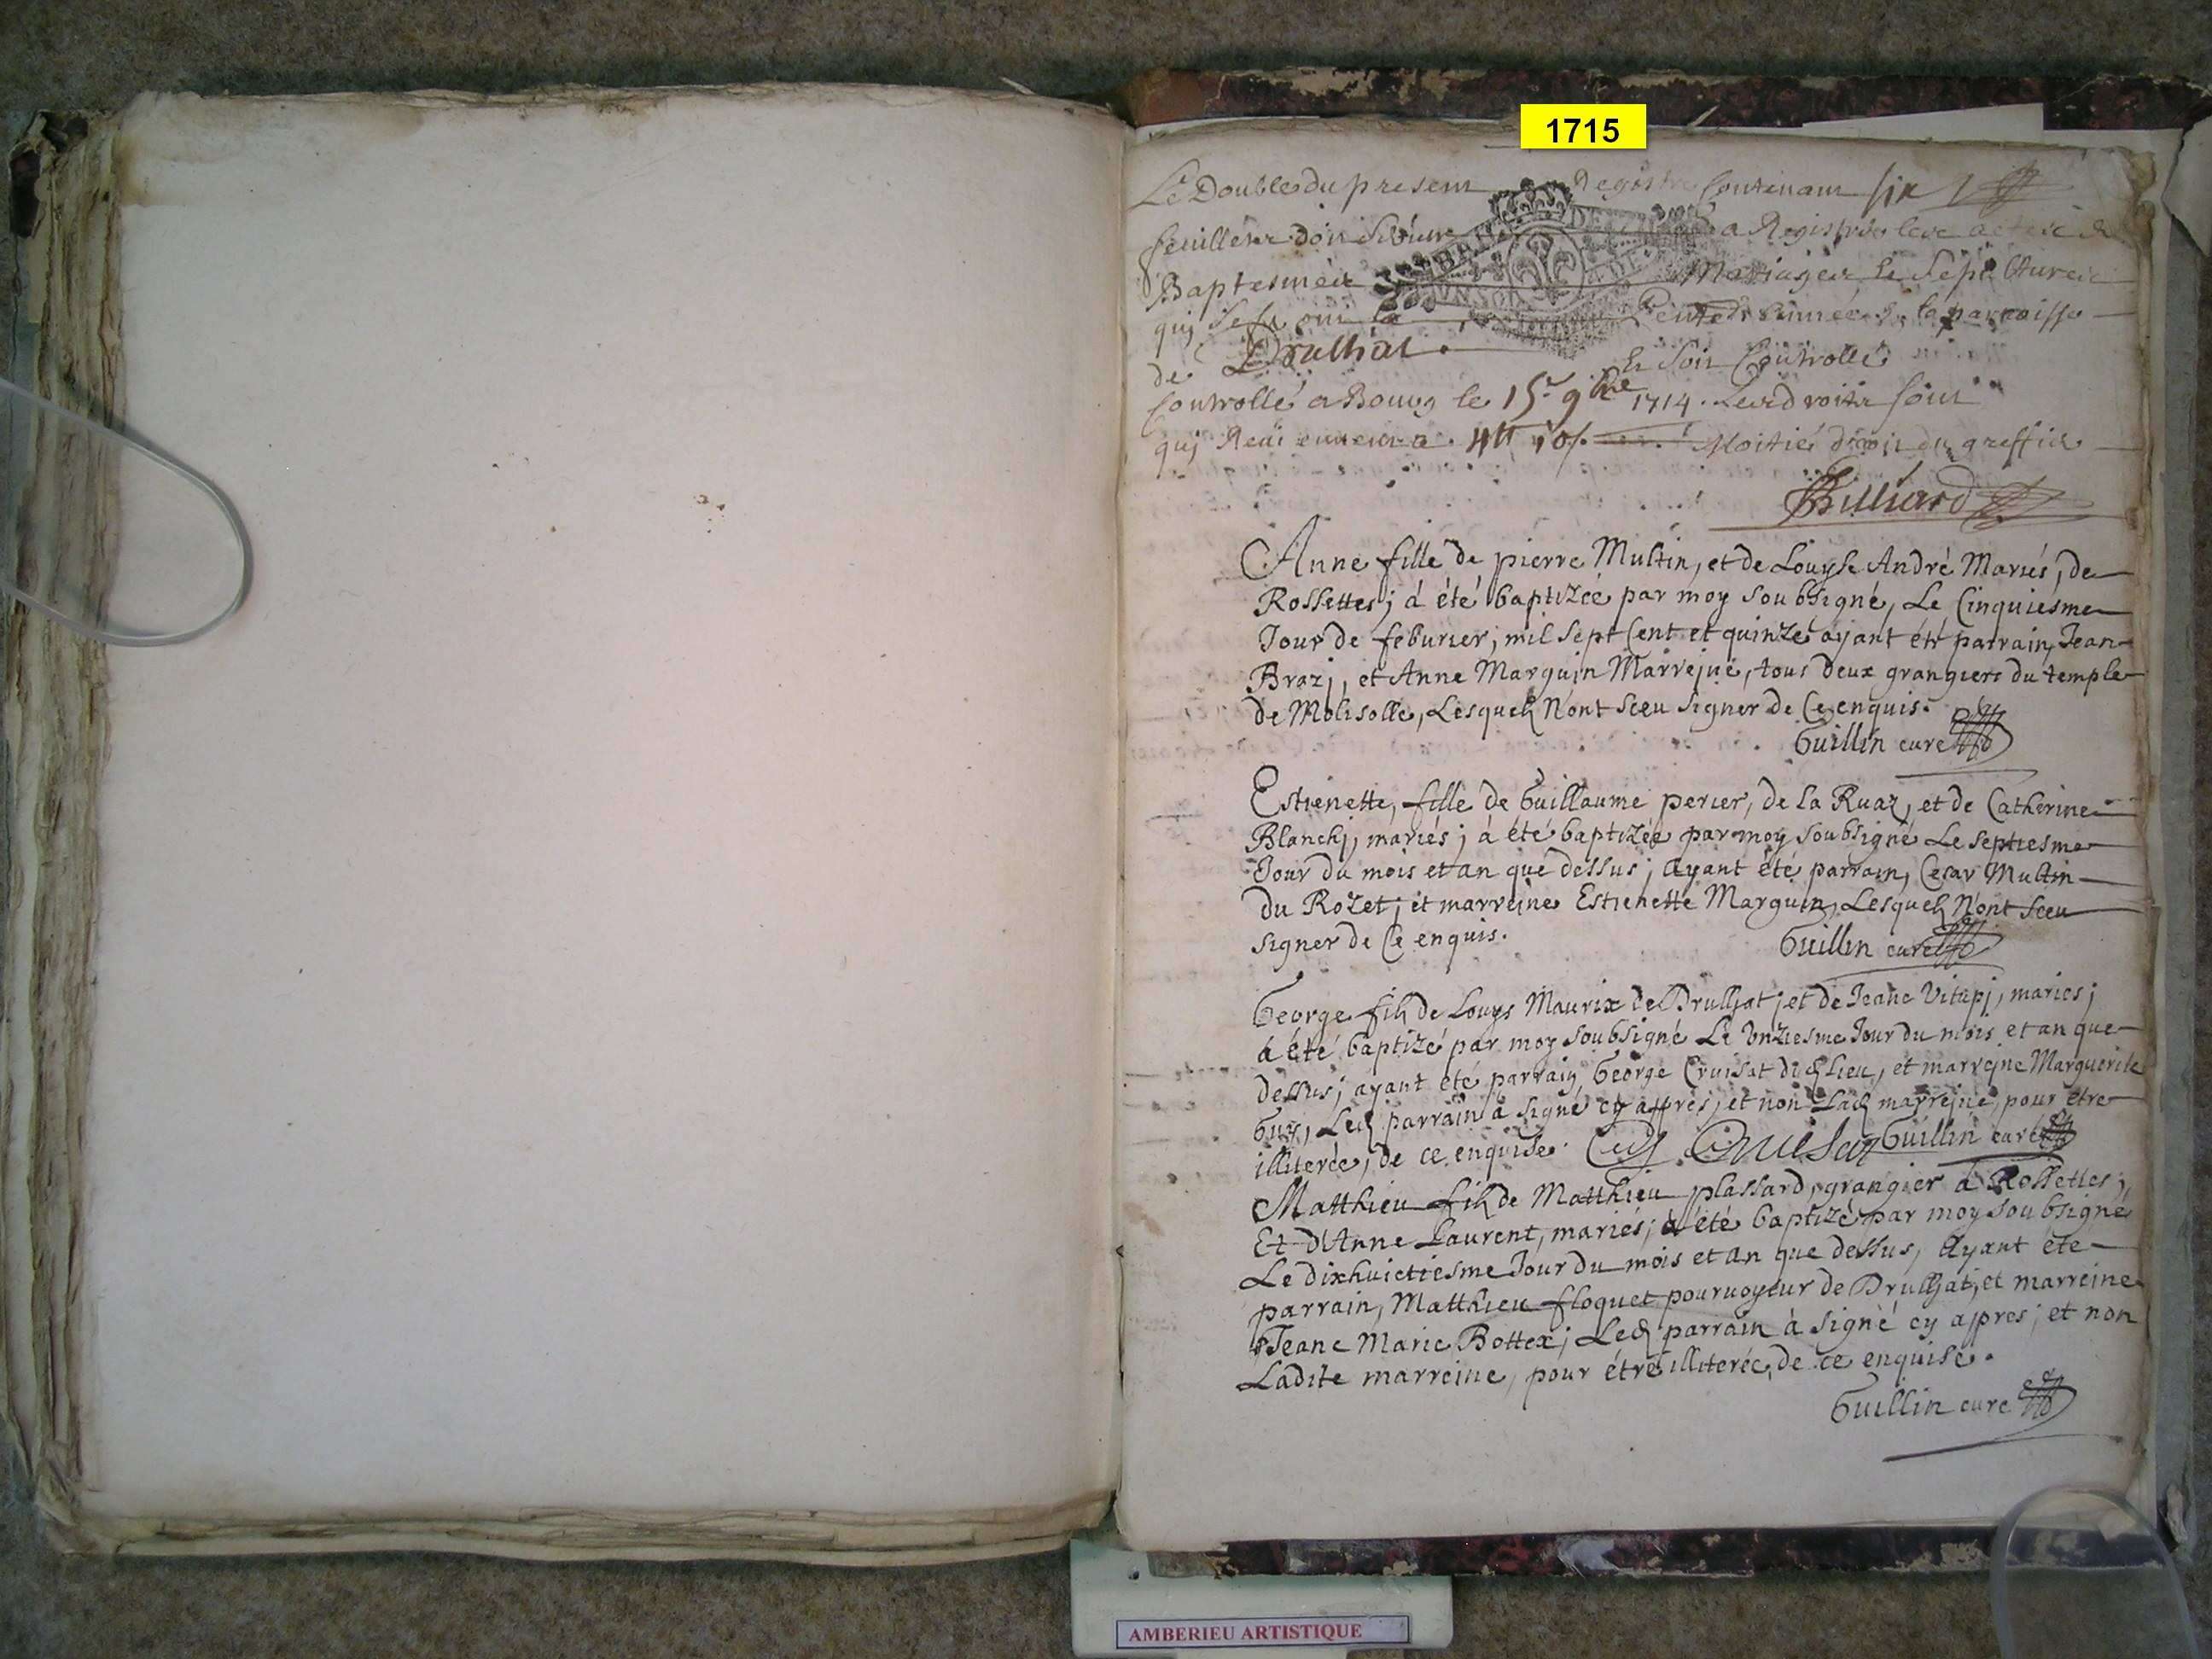 1715
Le Double du present Registre Contenant six
feuillets doit servir a Registrer les actes de
Baptesmes Mariages et Sepultures
qui se la presente année de la parroisse
de Drulhat.
et soit Controllé
Controllé a Bourg le 15e 9bre 1714. Les droits sont
qui Moitié droit du greffier
Billiard
Anne fille de pierre Multin, et de Louyse André Mariés, de
Rossettes; á été baptizée par moy soubsigné, Le Cinquiesme
Jour de feburier, mil sept Cent et quinze ayant été parrain, Jean
Brazj, et Anne Marguin Marrejne, tous deux grangiers du temple
de Molissolle, Lesquels Nont sceu signer de Ce enquis.
Guillin curé
Estienette, fille de Guillaume perier, de la Ruaz, et de Catherine
Blanchj, mariés; á été baptizée par moy soubsigné Le septiesme
Jour du mois et an que dessus; ayant été parrain, Cesar Multin
du Rozet; et marreine Estienette Marguin, Lesquels Nont sceu
signer de Ce enquis.
Guillin curé
George fils de Louys Maurix de Drulhat; et de Jeane Vitupj, mariés;
á été baptizé par moy soubsigné Le Unziesme Jour du mois et an que
dessus; ayant été parrain, George Cruisat dud lieu, et marrejne Marguerite
Guy, Led parrain à signé cy apres, et non Lad marrejne, pour étre
illiterée, de ce enquise. Cruisat Guillin curé
Matthieu fils de Matthieu plassard, grangier á Rossettes;
Et d'Anne Laurent, mariés; á été baptizé par moy soubsigné
Le dixhuictiesme Jour du mois et an que dessus, ayant été
parrain, Matthieu floquet pourvoyeur de Drulhat, et marreine
Jeane Marie Bottex; Led parrain à signé cy apres; et non
Ladite marreine, pour étre illiterée, de ce enquise.
Guillin curé
AMBERIEU ARTISTIQUE